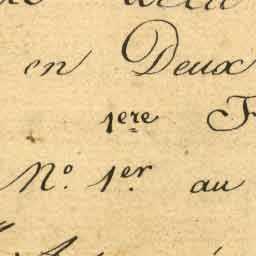 en Deux
1ere F
N.o 1er. au